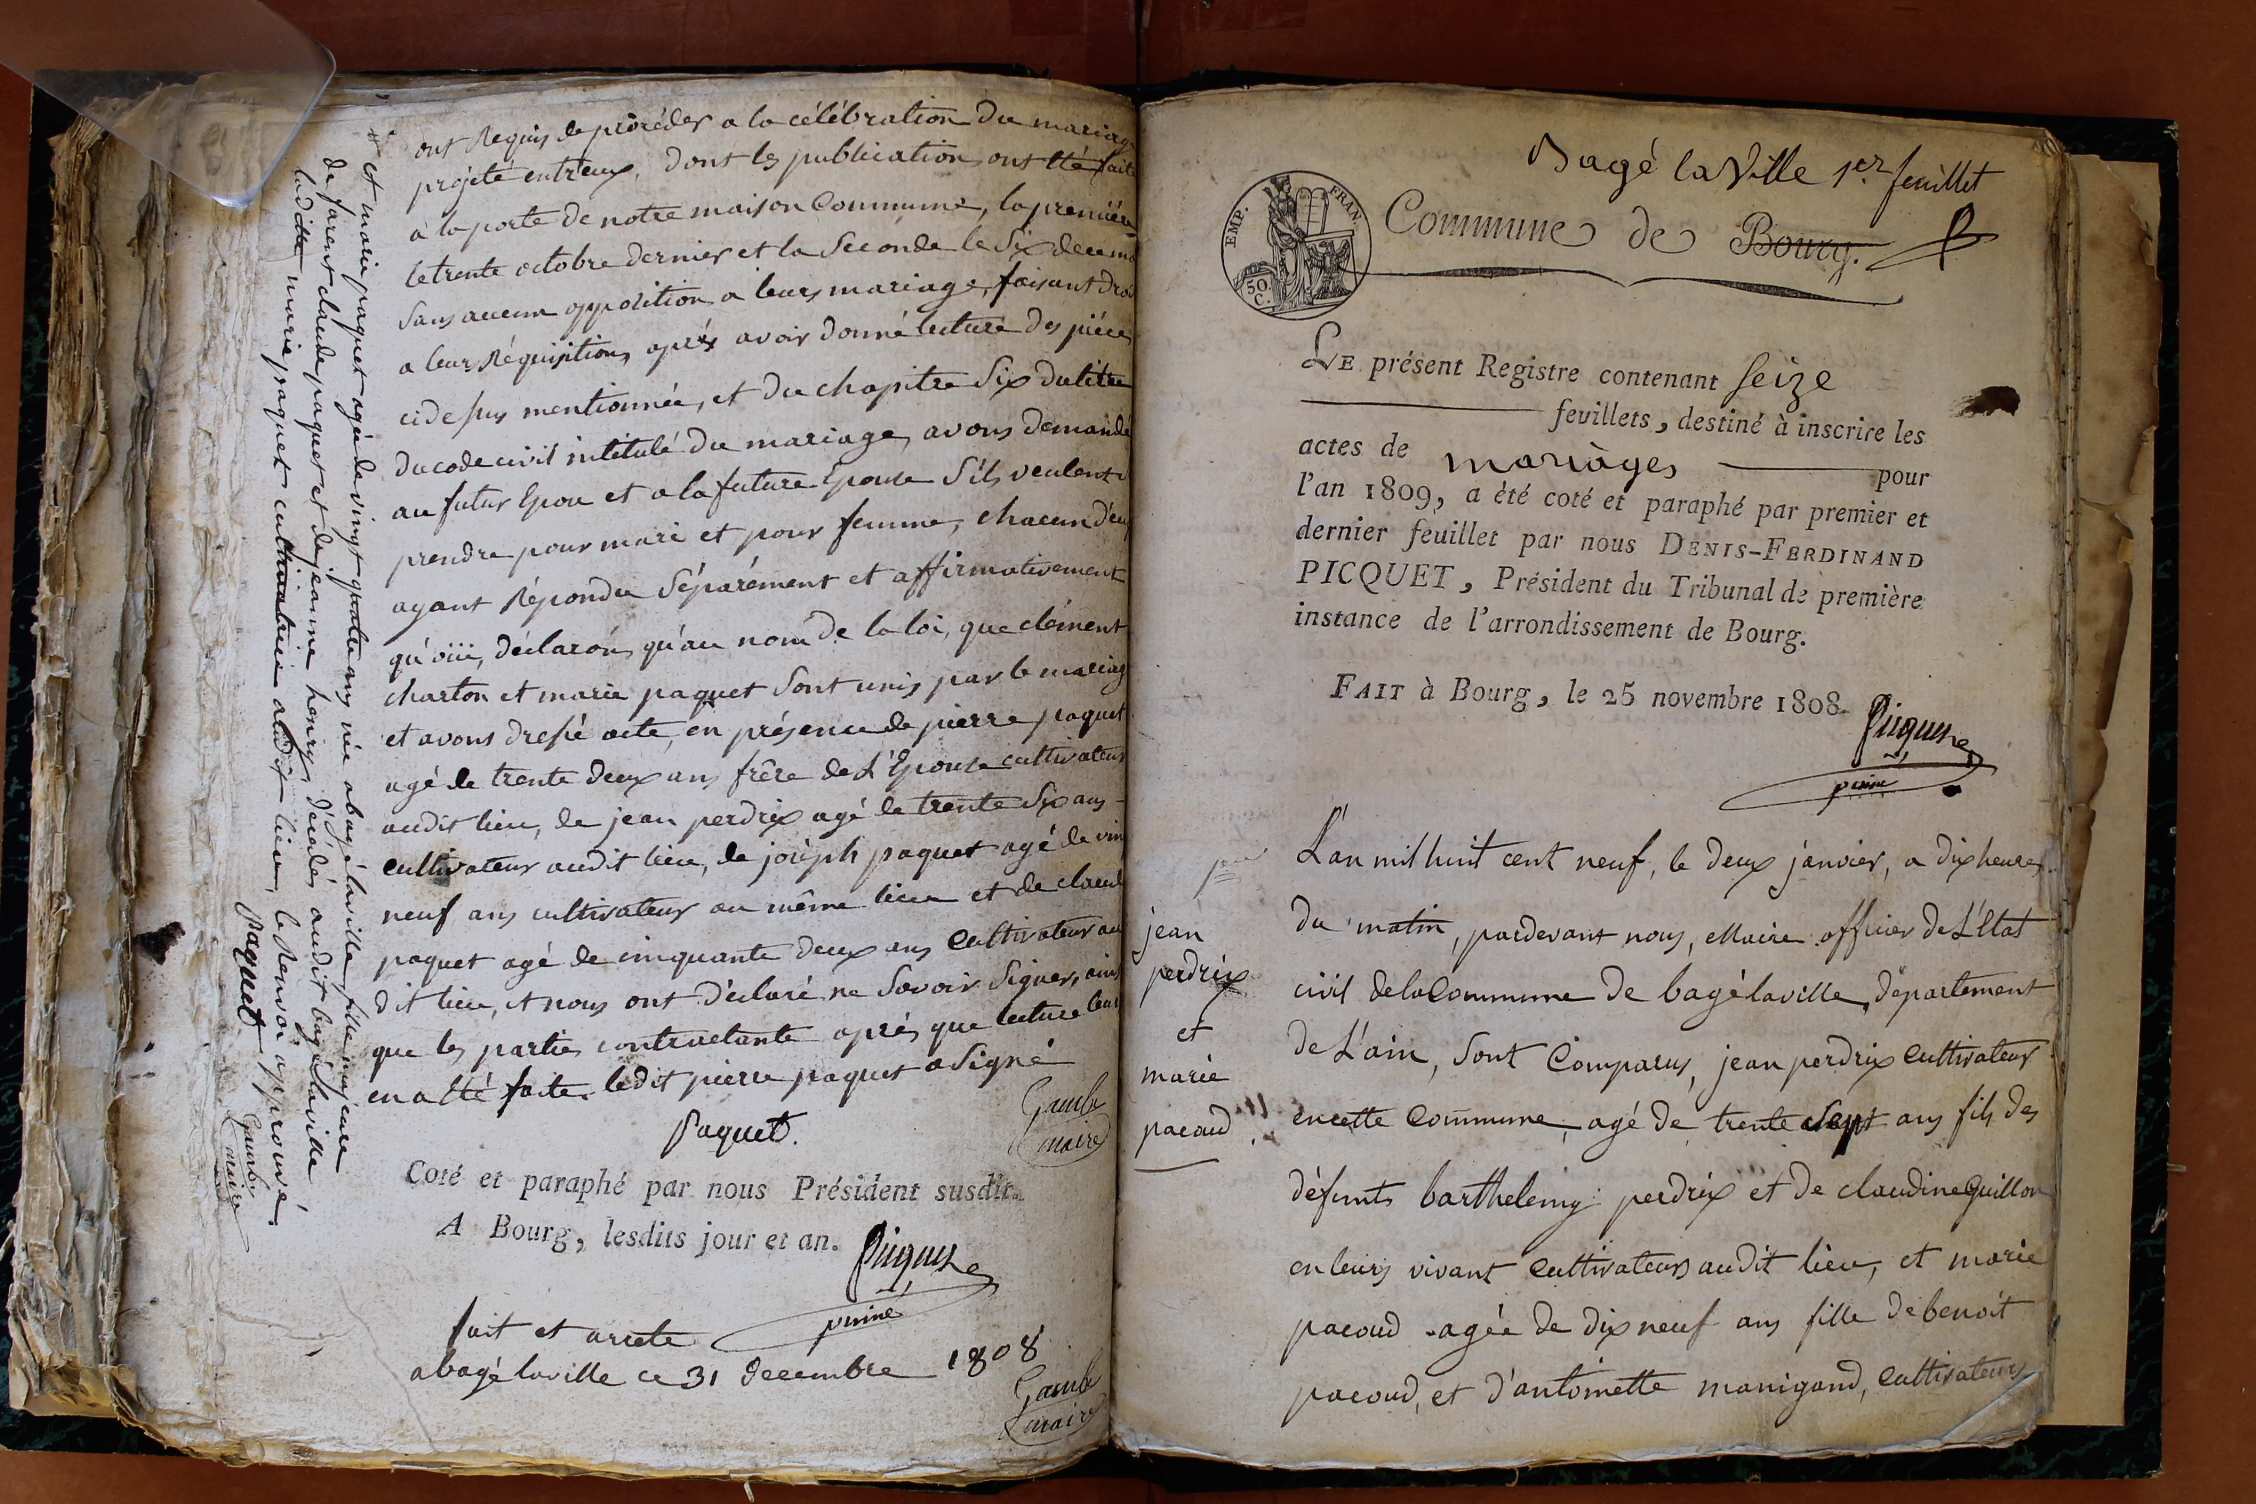 ont Requis de procéder a la célébration du mariage
projeté entr'eux, dont les publication ont été faite
à la porte de notre maison Commune, la premiére
le trente octobre dernier et la Seconde le Six
Sans aucun opposition a leurs mariage, faisant droi
a leurs Réquisitions, aprés avoir donné lecture des piéces
cidessus mentionnée, et du chapitre Six du titre
du code civil intitulé du mariage, avons demandé
au futur Epou et a la future Epouse S'ils veulent
prendre pour mari et pour femme, chacun d'eux
ayant Répondu Séparément et affirmativement
qu'oiii, déclarons, qu'au nom de la loi, que clément
charton et marie paquet Sont unis par le mariag
et avons dressé acte, en présence de pierre paquet
agé de trente deux ans frêre de L'Epouse cultivateur
audit lieu, de jean perdrix agé de trente Six ans -
cultivateur audit lieu, de joseph paquet agé de vin
neuf ans cultivateur au même lieu et de claude
paquet agé de cinquante deux ans Cultivateur au
dit lieu, et nous ont déclaré ne Savoir Signer, ains
que les parties contractante aprés que lecture leur
en a été faite. ledit pierre paquet a Signé
Paquet.
Gambe
maire
Coté et paraphé par nous Président susdit.
A Bourg, lesdits jour et an.
Picquet
fait et arrete
abagé laville ce 31 decembre 1808
Gambe
maire
et marie paquet agée de vingt quatre ans née abagé laville, fille majeure
de farent claude paquet et de jeanne henry décédés audit bagé laville
ladite marie paquet cultivatrice audit lieu, le Renvoi approuvé.
Paquet
Gambe
maire
Bagé la Ville 1er feuillet
EMP. FRAN
50 C.
Commune de Bourg.
LE présent Registre contenant seize
feuillets, destiné à inscrire les
actes de mariages pour
l'an 1809, a été coté et paraphé par premier et
dernier feuillet par nous DENIS-FERDINAND
PICQUET, Président du Tribunal de première
instance de l'arrondissement de Bourg.
FAIT à Bourg, le 25 novembre 1808.
Picquet
jean
perdrix
et
marie
pacoud
L'an mil huit cent neuf, le deux janvier, a dix heures
du matin, pardevant nous, Maire officier de L'Etat
civil de la Commune de bagélaville, département
de L'ain, Sont Comparus, jean perdrix Cultivateur
en cette Commune, agé de trente Sept ans fils des
défunts barthelemy perdrix et de claudine Guillon
en leurs vivant Cultivateurs audit lieu, et marie
pacoud agée de dix neuf ans fille de benoit
pacoud, et d'antoinette manigand, Cultivateurs